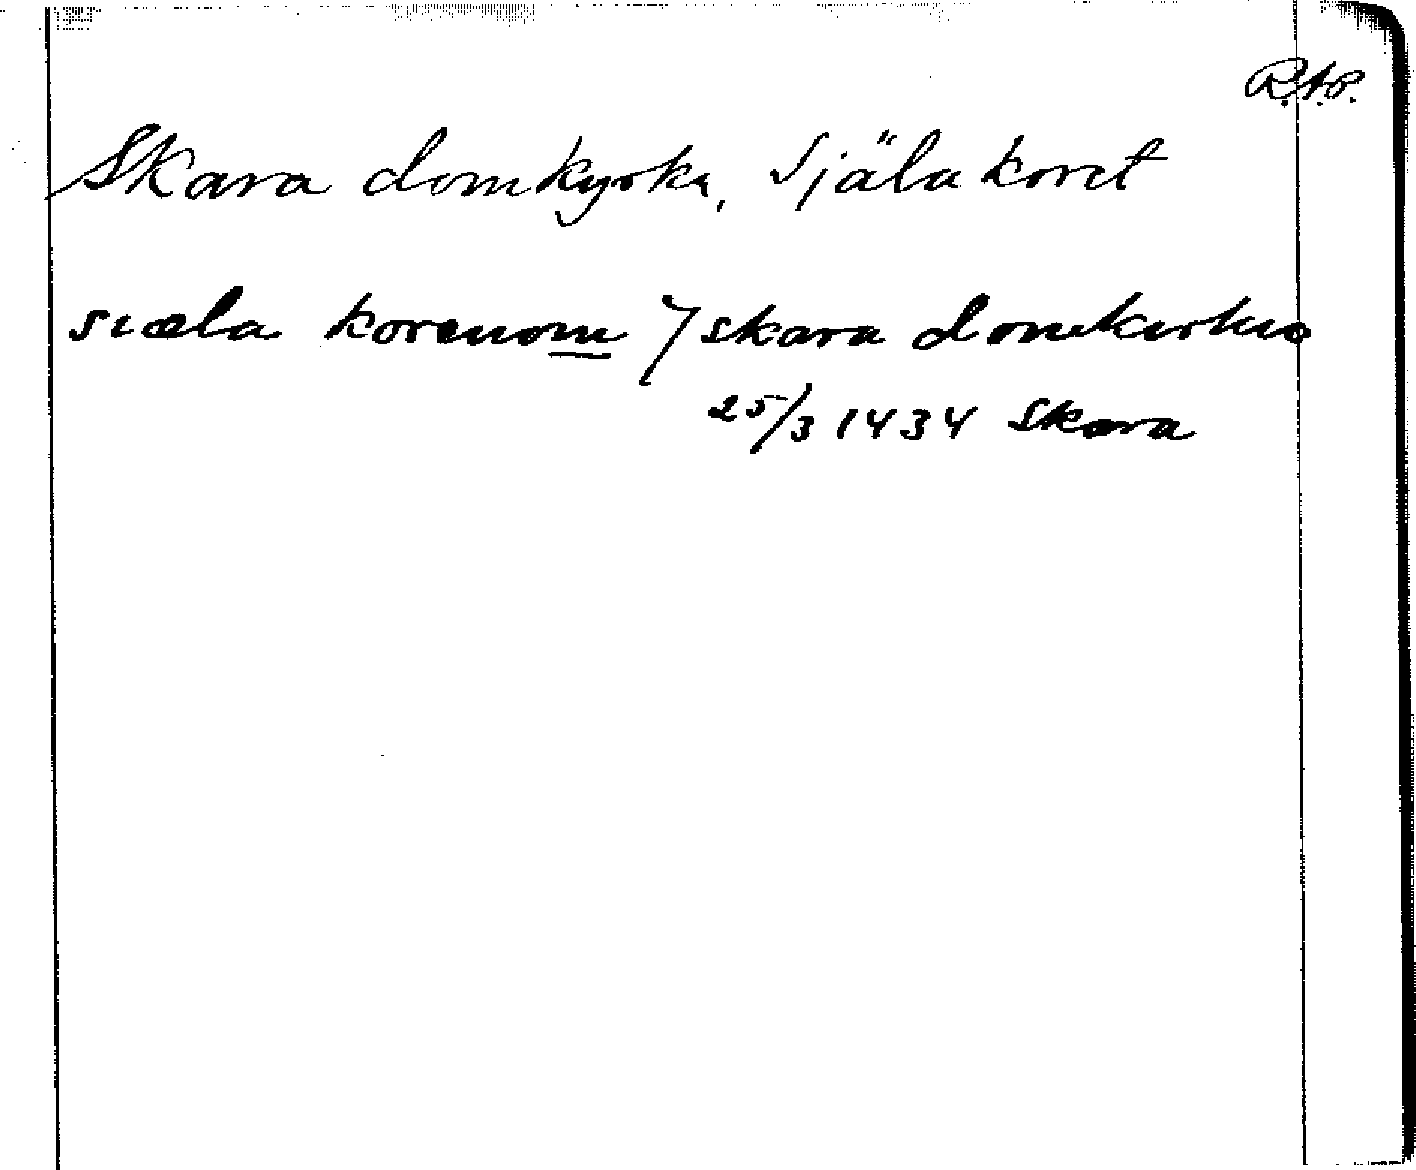 R.A.P.
Skara domkyrka, Själakoret
siæla korenom J skara domkirkio
25/3 1434 Skara